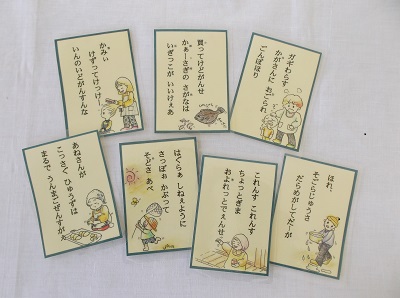 かみぃ
けずってけっけ
いんのいどがんすんな
買ってけどがんせ
かぁーさぎの さがなは
いぎっこが いいけぇあ
ガギわらす
かがさんに おごられ
ごんぼほり
あねさんが
こっさぐ ひゅうずは
まるで うんまごぜんすがぇ
はぐらぁ しねぇように
さっぽぉ かぶって
そどさ あべ
これんす これんす
ちょっとぎま
およれってでぇんせ
ほれ、
そごらじゅうさ
だらめがしてだーが